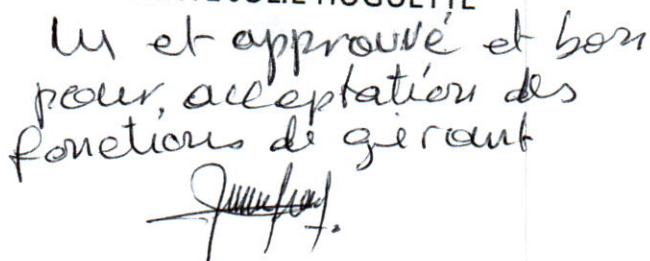 JULIE HUGUETTE
lu et approuvé et bon
pour, acceptation des
fonctions de gérant